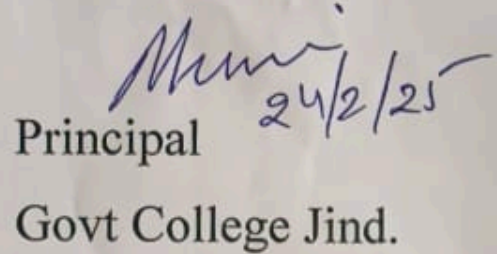 24/2/25
Principal
Govt College Jind.